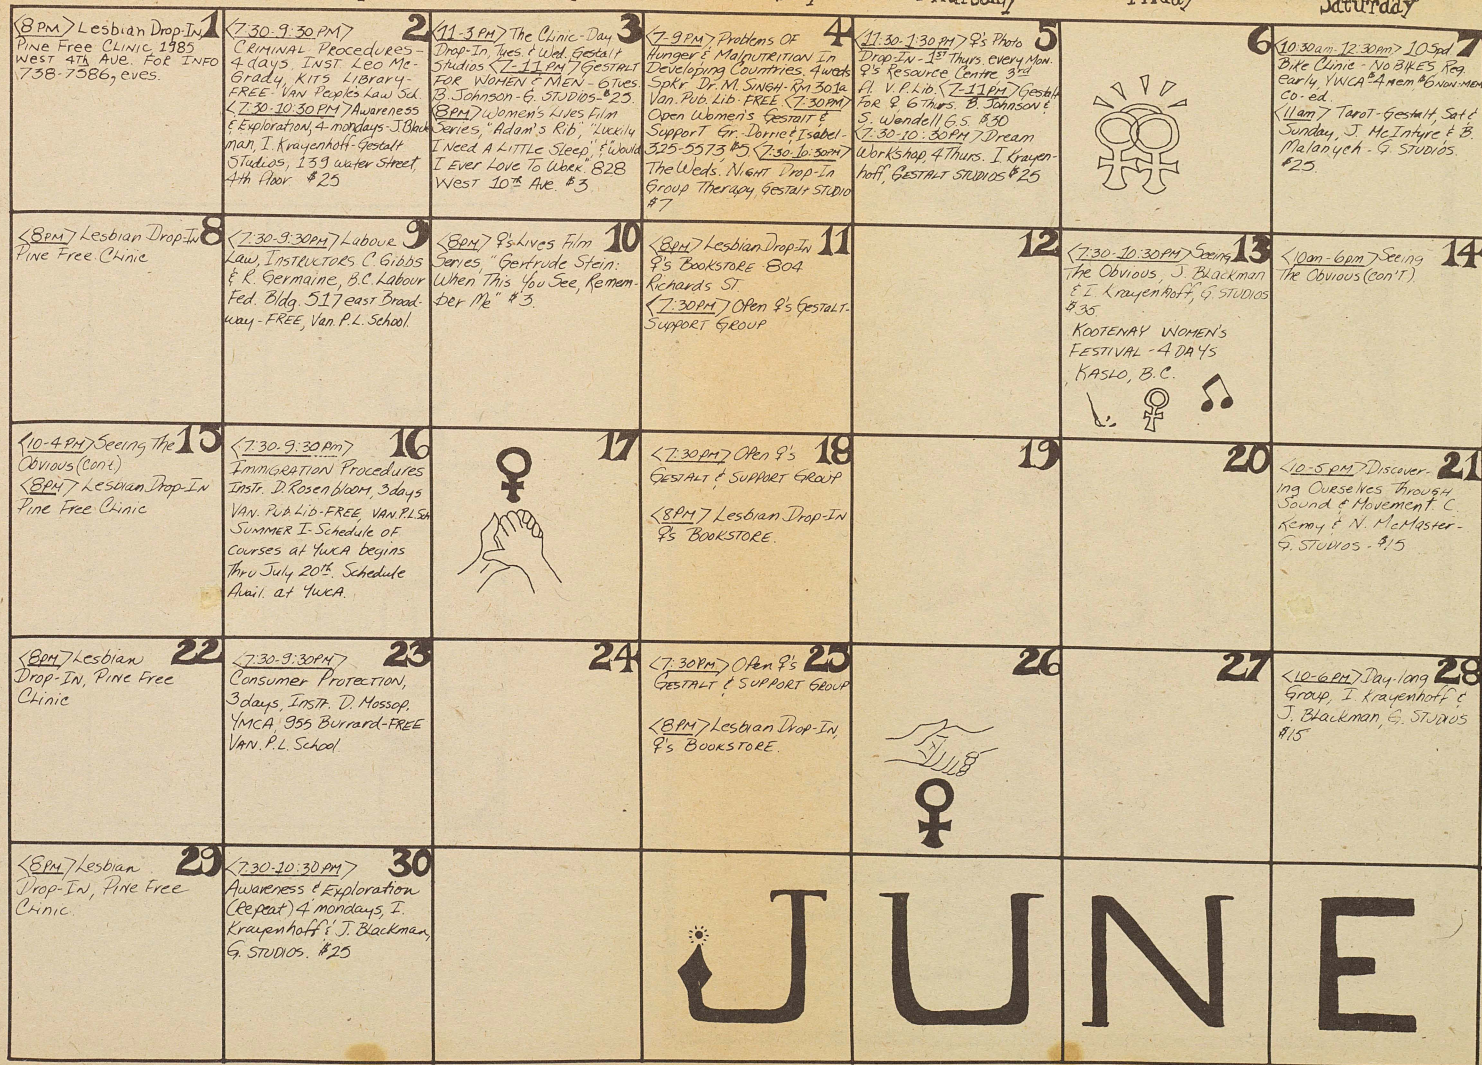 Thursday
Friday
Saturday
1
<8PM> Lesbian Drop-In,
Pine Free Clinic, 1985
West 4th Ave. For Info
738-7586, eves.
2
<7:30-9:30PM>
Criminal Procedures-
4 days. Inst. Leo Mc-
Grady, Kits Library-
FREE- Van People's Law Sch.
<7:30-10:30PM> Awareness
& Exploration, 4 mondays-J. Black
man, I. Krayenhoff-Gestalt
Studios, 139 Water Street,
4th Floor $25
3
<11-3PM> The Clinic-Day
Drop-In, Tues. & Wed. Gestalt
Studios <7-11PM> Gestalt
For Women & Men - 6 Tues.
B. Johnson-G. Studios-$25.
<8PM> Women's Lives Film
Series, "Adam's Rib", "Luckily
I Need A Little Sleep," & "Would
I Ever Love To Work" 828
West 10th Ave. $3
4
<7-9PM> Problems Of
Hunger & Malnutrition In
Developing Countries. 4 weds
Spkr Dr. M. Singh-Rm 301a
Van. Pub. Lib-FREE <7:30PM>
Open Women's Gestalt &
Support Gr.-Dorrie & Isabel-
325-5573 $5 <7:30-10:30PM>
The Weds. Night Drop-In
Group Therapy, Gestalt Studio
$7
5
<11:30-1:30PM> ♀'s Photo
Drop-In-1st Thurs. every Mon.
♀'s Resource Centre 3rd
fl. V.P.Lib. <7-11PM> Gestalt
For ♀ 6 Thurs. B. Johnson &
S. Wendell G.S. $30
<7:30-10:30PM> Dream
Workshop, 4 Thurs. I Krayen-
hoff, Gestalt Studios $25
6
7
<10:30am-12:30pm> 10 Spd
Bike Clinic-No BIKES Reg.
early, YWCA $4 mem $6 non-mem
Co-ed.
<11am> Tarot-Gestalt, Sat &
Sunday, J. McIntyre & B.
Malanych-G. Studios.
$25.
8
<8PM> Lesbian Drop-In
Pine Free Clinic
9
<7:30-9:30PM> Labour
Law, Instructors C. Gibbs
& R. Germaine, B.C. Labour
Fed. Bldg. 517 east Broad-
way-FREE, Van. P.L. School.
10
<8PM> ♀'s Lives Film
Series, "Gertrude Stein:
When This You See, Remem-
ber Me" $3
11
<8PM> Lesbian Drop-In
♀'s Bookstore-804
Richards St.
<7:30PM> Open ♀'s Gestalt-
Support Group
12
13
<7:30-10:30PM> Seeing
The Obvious, J. Blackman
& I. Krayenhoff, G. Studios
$35
Kootenay Women's
Festival - 4 days
Kaslo, B.C.
14
<10am-6pm> Seeing
The Obvious (con't)
15
<10-4PM> Seeing The
Obvious (cont)
<8PM> Lesbian Drop-In
Pine Free Clinic
16
<7:30-9:30Pm>
Immigration Procedures
Instr. D. Rosenbloom, 3 days
Van. Pub. Lib-FREE, Van. P.L. Sch
Summer I-Schedule of
courses at YWCA begins
thru July 20th. Schedule
Avail. at YWCA.
17
18
<7:30PM> Open ♀'s
Gestalt & Support Group
<8PM> Lesbian Drop-In
♀'s Bookstore.
19
20
21
<10-5PM> Discover-
ing Ourselves Through
Sound & Movement. C.
Kenny & N. McMaster-
G. Studios-$15
22
<8PM> Lesbian
Drop-In, Pine Free
Clinic
23
<7:30-9:30PM>
Consumer Protection,
3 days, Instr. D. Mossop,
YMCA, 955 Burrard-FREE
Van. P.L. School.
24
25
<7:30PM> Open ♀'s
Gestalt & Support Group
<8PM> Lesbian Drop-In,
♀'s Bookstore.
26
27
28
<10-6PM> Day-long
Group, I Krayenhoff &
J. Blackman, G. Studios
$15
29
<8PM> Lesbian
Drop-In, Pine Free
Clinic.
30
<7:30-10:30PM>
Awareness & Exploration
(Repeat) 4 mondays, I.
Krayenhoff & J. Blackman,
G. Studios. $25
JUNE